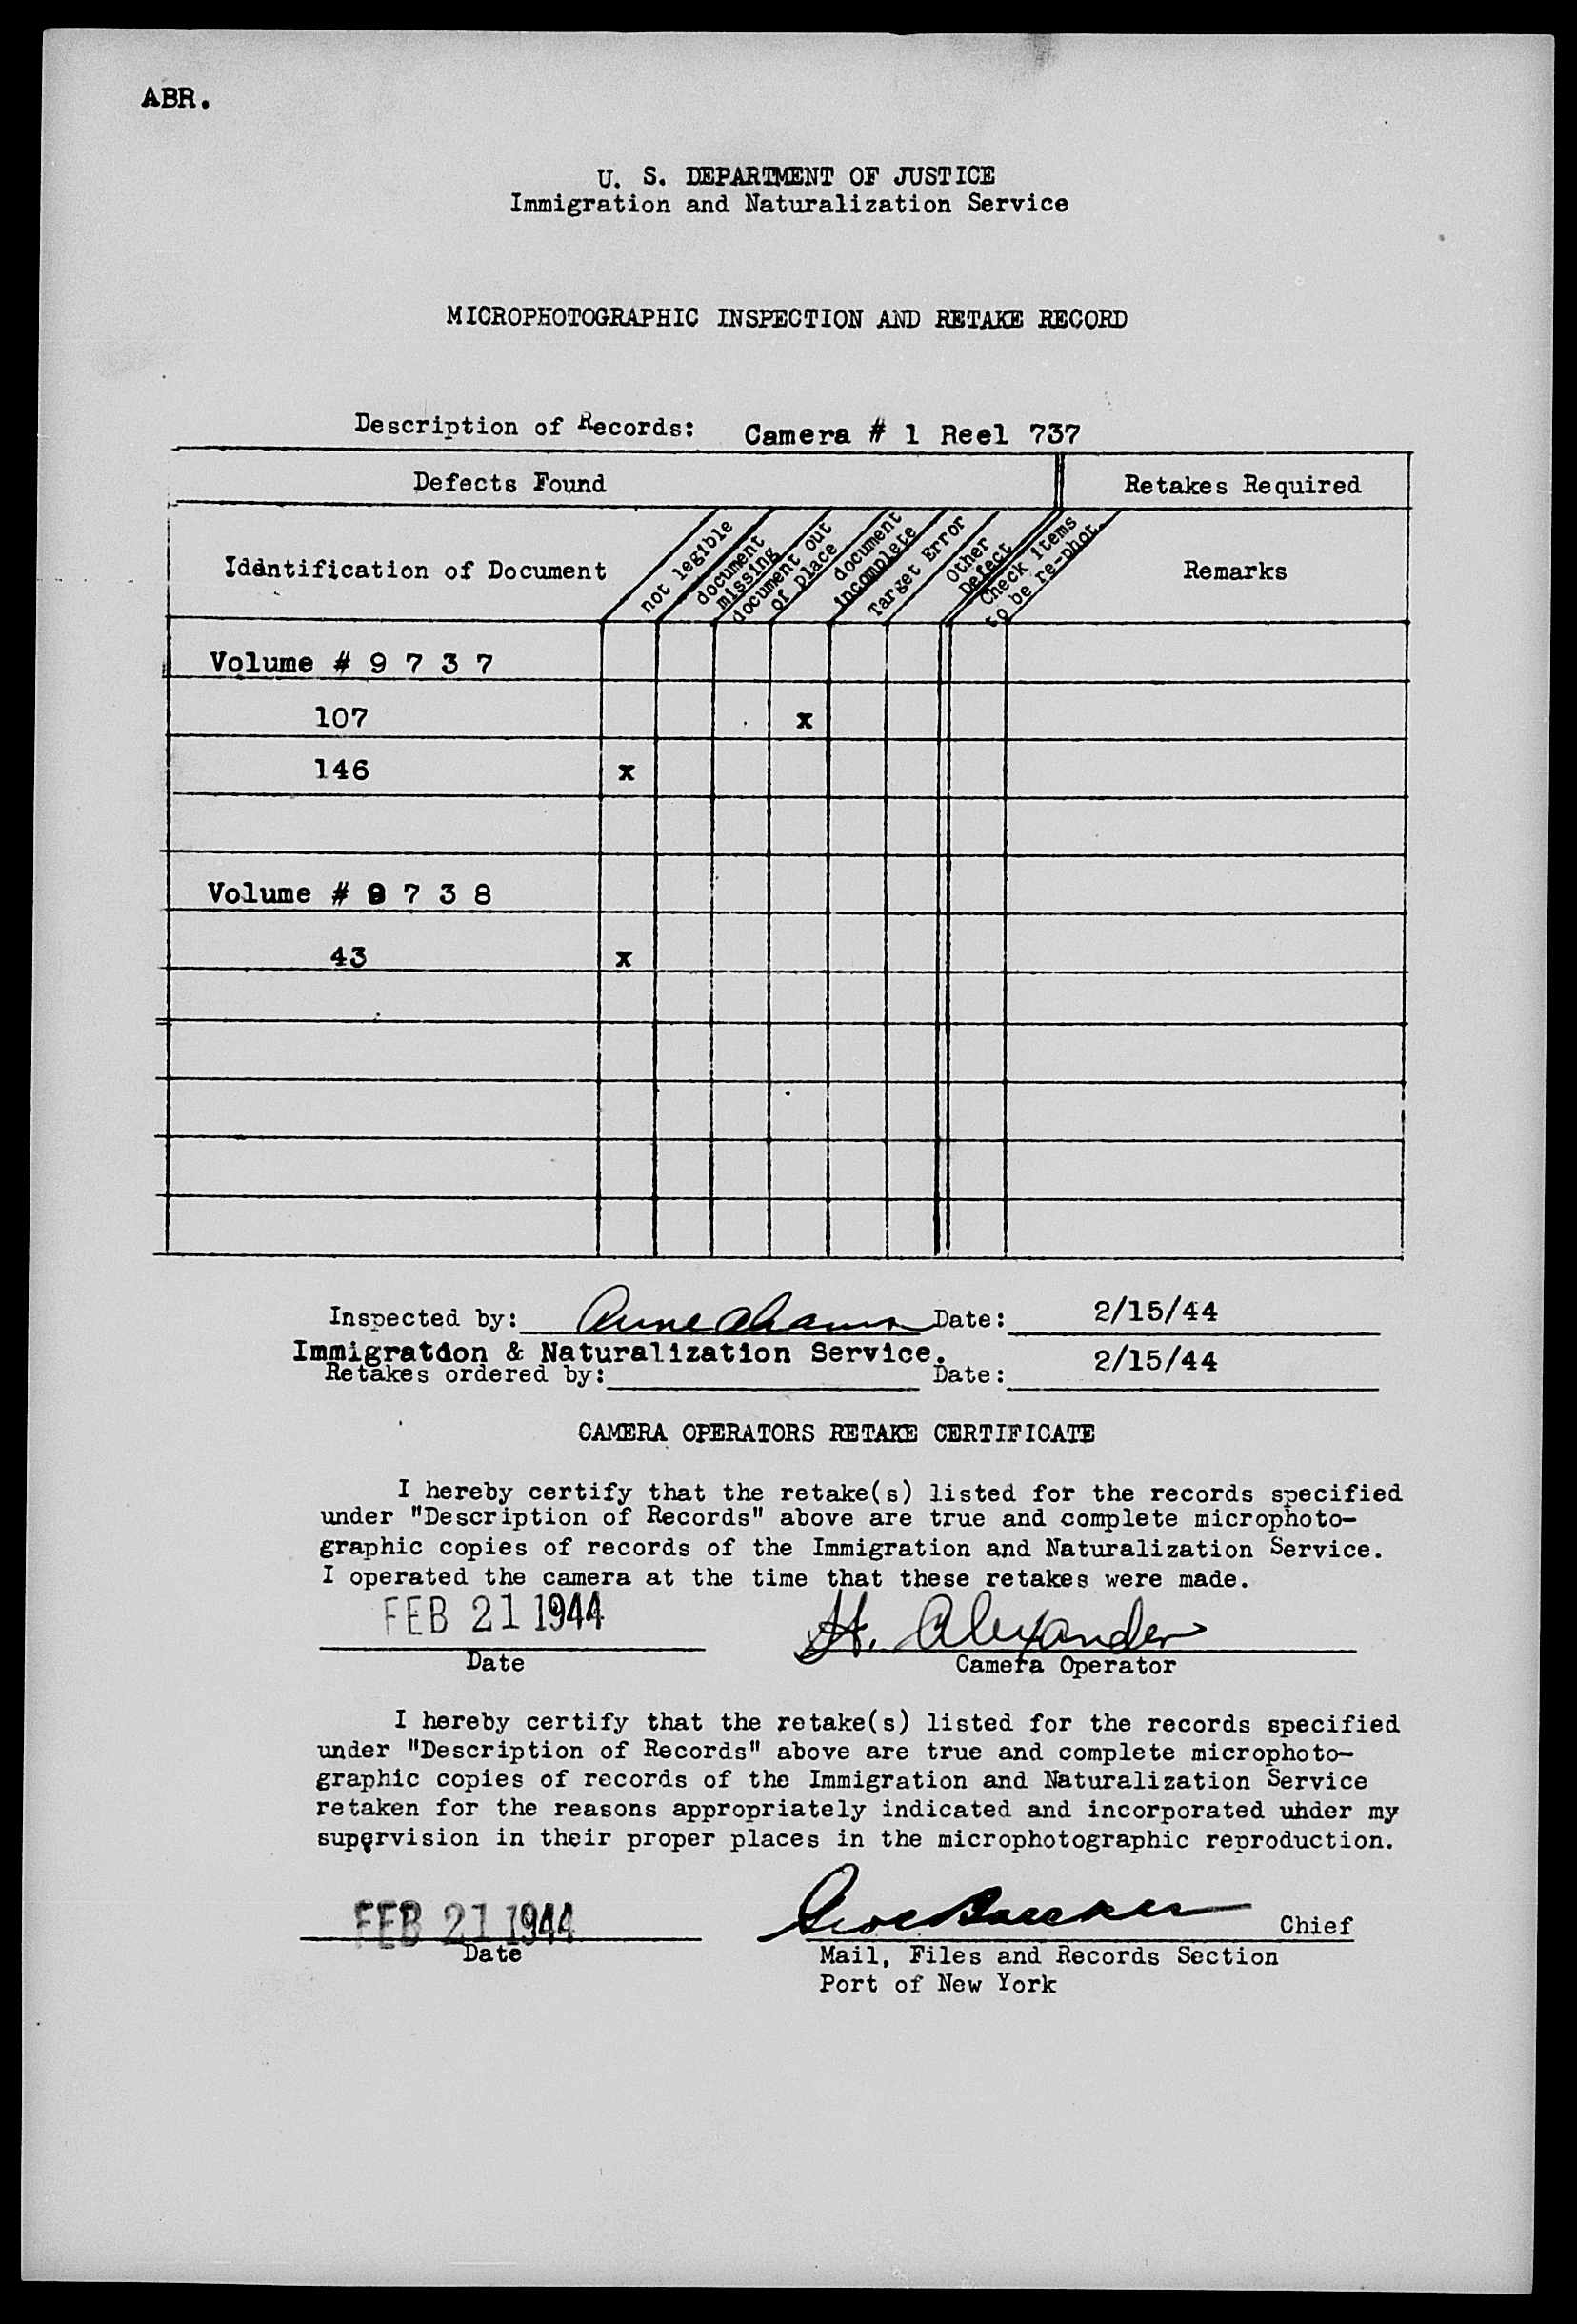 ABR.
U. S. DEPARTMENT OF JUSTICE
Immigration and Naturalization Service
MICROPHOTOGRAPHIC INSPECTION AND RETAKE RECORD
Description of Records: Camera # 1 Reel 737
Defects Found Retakes Required
Identification of Document
not legible
document missing
document out of place
document incomplete
Target Error
Other Defect
Check items to be re-phot.
Remarks
Volume # 9 7 3 7
107 x
146 x
Volume # 9 7 3 8
43 x
Inspected by: Anne Date: 2/15/44
Immigratdon & Naturalization Service.
Retakes ordered by: Date: 2/15/44
CAMERA OPERATORS RETAKE CERTIFICATE
I hereby certify that the retake(s) listed for the records specified
under "Description of Records" above are true and complete microphoto-
graphic copies of records of the Immigration and Naturalization Service.
I operated the camera at the time that these retakes were made.
FEB 21 1944 H. Alexander
Date Camera Operator
I hereby certify that the retake(s) listed for the records specified
under "Description of Records" above are true and complete microphoto-
graphic copies of records of the Immigration and Naturalization Service
retaken for the reasons appropriately indicated and incorporated uhder my
supervision in their proper places in the microphotographic reproduction.
FEB 21 1944 Chief
Date Mail, Files and Records Section
Port of New York